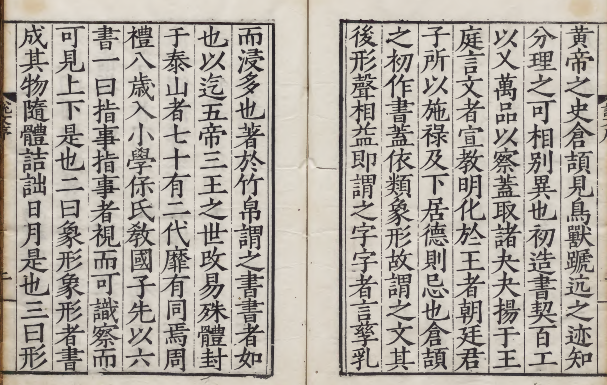 黃帝之史倉頡見鳥獸蹏迒之迹知
分理之可相別異也初造書契百工
以乂萬品以察蓋取諸夬夬揚于王
庭言文者宣教明化於王者朝廷君
子所以施祿及下居德則忌也倉頡
之初作書蓋依類象形故謂之文其
後形聲相益即謂之字字者言孳乳
而浸多也著於竹帛謂之書書者如
也以迄五帝三王之世改易殊體封
于泰山者七十有二代靡有同焉周
禮八歲入小學保氏敎國子先以六
書一曰指事指事者視而可識察而
可見上下是也二曰象形象形者畫
成其物隨體詰詘日月是也三曰形